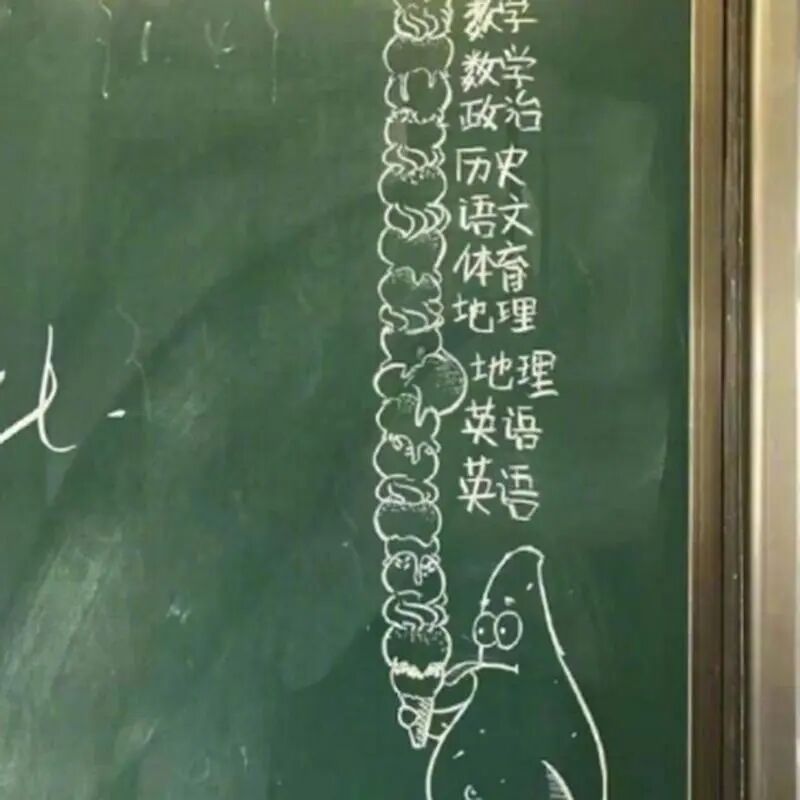 数学
数学
政治
历史
语文
体育
地理
地理
英语
英语